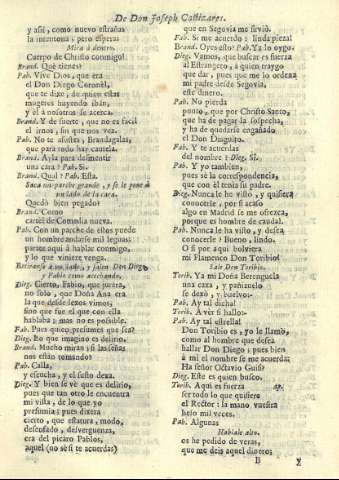 De Don Joseph Cañizares.
y assi, como nuevo estrañas
la intentona; pero espera:
Mira à dentro.
Cuerpo de Christo conmigo!
Brand. Què tienes?
Pab. Vive Dios, que era
el Don Diego Coronèl,
que te dixe, de quien estas
mugeres huyendo iban,
y èl à nosotros se acerca.
Brand. Y de suerte, que no es facil
el irnos, sin que nos vea.
Pab. No te assustes, Brandagalas,
que para todo hay cautela.
Brand. Ayla para desmentir
una cara? Pab. Si.
Brand. Quàl? Pab. Esta.
Saca un parche grande, y se le pone à
un lado de la cara.
Quedò bien pegado?
Brand. Como
cartèl de Comedia nueva.
Pab. Con un parche de estos puede
un hombre andarse mil leguas
parece aqui à hablar conmigo,
y lo que viniere venga.
Retiranse à un lado, y salen Don Diego,
y Pablo como acechando.
Dieg. Cierto, Fabio, que juràra,
no solo, que Doña Ana era
la que desde lexos vimos;
sino que fue el que con ella
hablaba; mas no es possible.
Fab. Pues quien presumes que sea?
Dieg. Lo que imagino es delirio.
Brand. Mucho miran; si las señas
nos estàn tomando?
Pab. Calla,
y escucha, y el susto dexa.
Dieg. Y bien se vè que es delirio,
pues que tan otro le encuentra
mi vista, de lo que yo
presumia; pues dixera
cierto, que estatura, modo,
desenfado, desverguenza,
era del picaro Pablos,
aquel (no sè si te acuerdas)
que en Segovia me sirviò.
Fab. Si me acuerdo: linda pieza!
Brand. Oyes esto? Pab. Ya lo oygo.
Dieg. Vamos, que buscar es fuerza
al Estrangero, à quien tengo
que dar, pues que me lo ordena
mi padre desde Segovia,
este dinero.
Pab. No pierda
punto, que por Christo Santo,
que ha de pagar la sospecha,
y ha de quedarse engañado
el Don Dieguito.
Fab. Y te acuerdas
del nombre? Dieg. Si.
Pab. Y yo tambien,
pues sè la correspondencia,
que con èl tenia su padre.
Dieg. Nunca le he visto, y quisiera
conocerle, por si acaso
algo en Madrid se me ofrezca,
porque es hombre de caudal.
Pab. Nunca le ha visto, y desea
conocerle? Bueno, lindo.
O si por aqui bolviera
mi Flamenco Don Toribio!
Sale Don Toribio.
Torib. Ya mi Doña Berenguela
una caxa, y pañizuelo
se dexò, y buelvo:
Pab. Ay tal dicha!
Torib. A vèr si hallo:
Pab. Ay tal estrella!
Don Toribio es, yo le llamo,
como al hombre que desea
hallar Don Diego; pues bien
à mi el nombre se me acuerda:
Ha señor Octavio Guis?
Dieg. Este es quien busco.
Torib. Aqui es fuerza ap.
ser todo lo que quisiere
el Retor: la mano vuestra
beso mil veces.
Pab. Algunas
Hablale alto.
os he pedido de veras,
que me deis aquel dinero:
B y